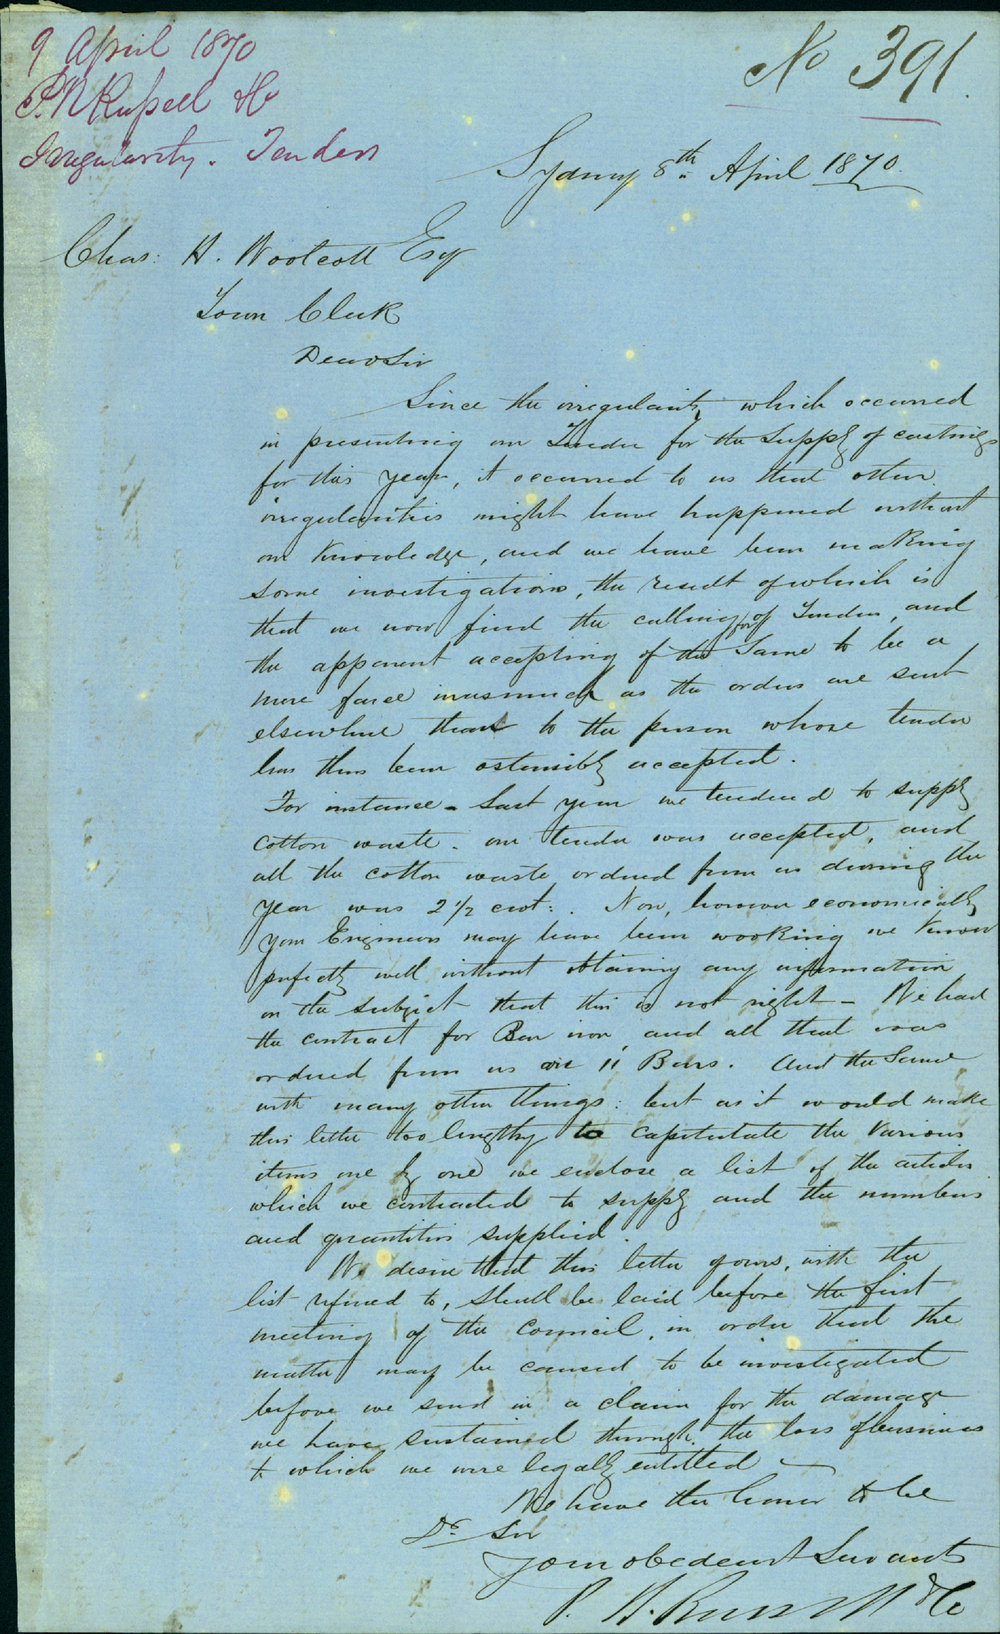 9 April 1870
P. N Russell & Co
Irregularity. Tenders
No 391
Sydney 8th April 1870.
Chas: H. Woolcott Esq
Town Clerk
Dear Sir
Since the irregularity which occurred
in presenting our Tender for the supply of castings
for this year, it occurred to us that other
irregularities might have happened without
our knowledge, and we have been making
some investigations, the result of which is
that we now find the calling for of Tenders, and
the apparent accepting of the same to be a
mere farce inasmuch as the orders are sent
elsewhere than to the person whose tender
has thus been ostensibly accepted.
For instance - Last year we tendered to supply
cotton waste - our tender was accepted, and
all the cotton waste ordered from us during the
year was 2 1/2 cwt: . Now, however economically
your Engineers may have been working we know
perfectly well without obtaining any information
on the subject that this is not right - We had
the contract for Bar iron, and all that was
ordered from us are 11 Bars. And the same
with many other things: but as it would make
this letter too lengthy to capitulate the various
items one by one we enclose a list of the articles
which we contracted to supply and the numbers
and quantities supplied.
We desire that this letter of ours, with the
list refered to, shall be laid before the first
meeting of the Council, in order that the
matter may be caused to be investigated
before we send in a claim for the damage
we have sustained through the loss of business
to which we were legally entitled -
We have the honor to be
Dr Sir
your obedient Servants
P. N. Russell & Co